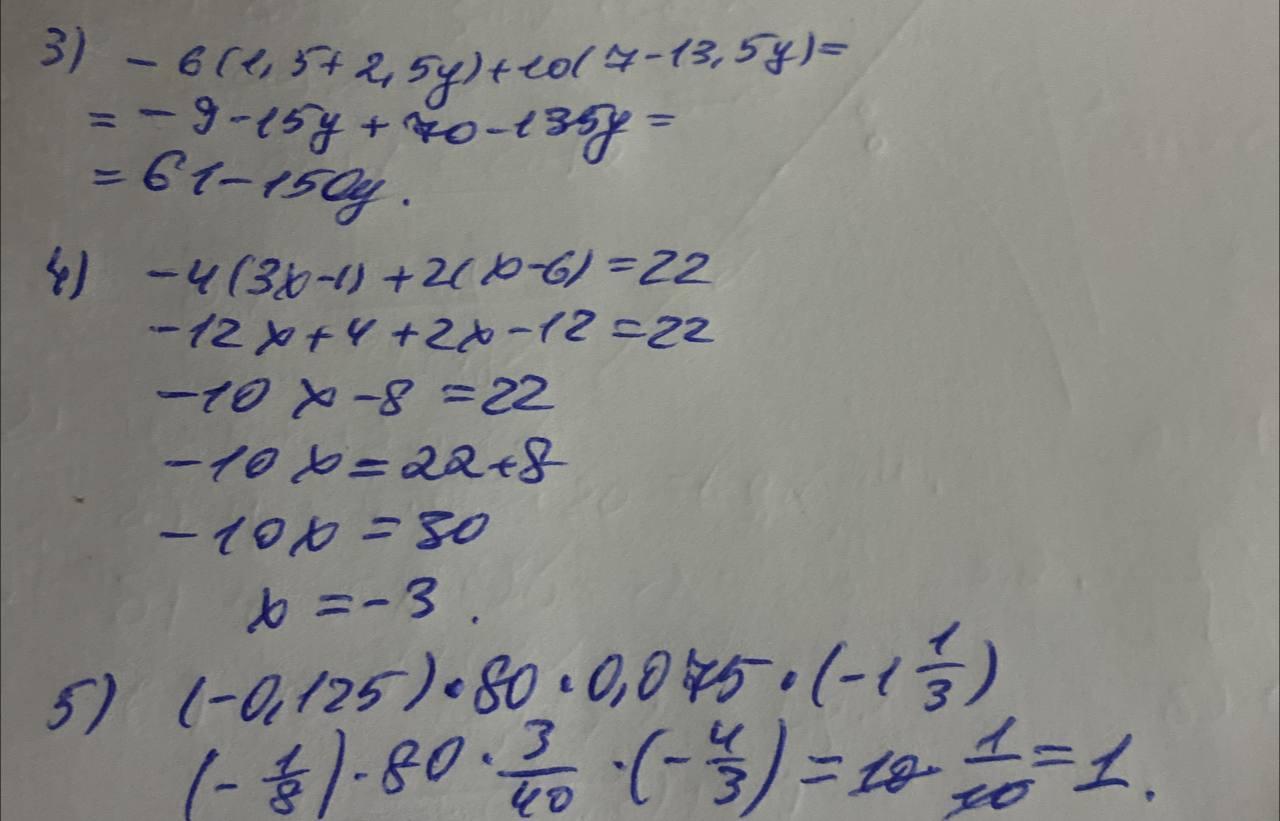 3) -6(1,5+2,5y)+10(7-13,5y)=
=-9-15y+70-135y=
=61-150y.
4) -4(3x-1)+2(x-6)=22
-12x+4+2x-12=22
-10x-8=22
-10x=22+8
-10x=30
x=-3.
5) (-0,125)·80·0,075·(-1 1/3)
(-1/8)·80·3/40·(-4/3)=10·1/10=1.